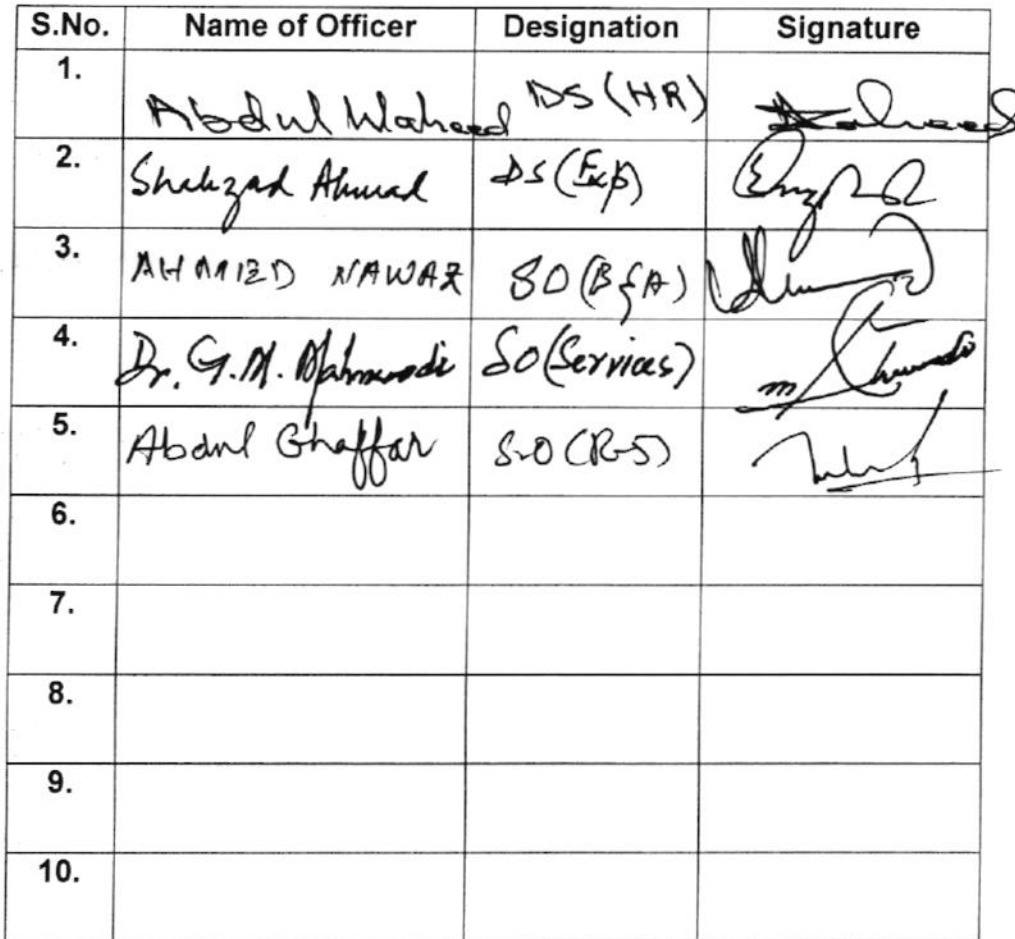 S.No. Name of Officer Designation Signature
1. Abdul Waheed DS (HR) Waheed
2. Shahzad Ahmad DS (Exp)
3. AHMED NAWAZ SO (B&A)
4. Dr. G.M. Mahmoodi SO (Services)
5. Abdul Ghaffar S.O (R-5)
6.
7.
8.
9.
10.